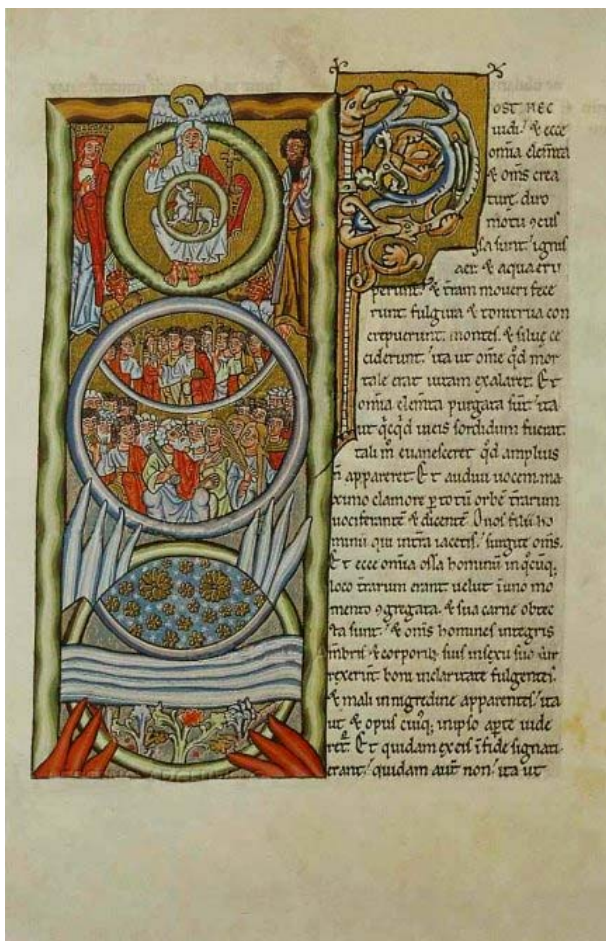 POST HEC
uidi. & ecce
om̄ia elem̄ta
& om̄s crea
turę. diro
motu ꝯcus
sa sunt. ignis
aer. & aqua eru
perunt. & t̄ram moueri fece
runt. fulgura & tonitrua con
crepuerunt. montes. & siluę ce
ciderunt. ita ut om̄e qd̄ mor
tale erat uitam exalaret. Et
om̄ia elem̄ta purgata sūt. ita
ut qͥcqͥd in eis sordidum fuerat.
tali m̄ euanesceret qd̄ amplius
n̄ appareret. Et audiui uocem ma
ximo clamore ꝑ totū orbē t̄rarum
uociferantē & dicentē. O uos filii ho
minū qui in t̄ra iacetis. surgite om̄s.
Et ecce om̄ia ossa hominū in qͦcūq;
loco t̄rarum erant uelut ī uno mo
mento ꝯgregata. & sua carne obtec
ta sunt. & om̄s homines integris
mēbris & corporib; suis in sexu suo sur
rexerūt. boni in claritate fulgentes.
& mali in nigredine apparentes. ita
ut & opus cuiusq; in ipso aꝑte uide
ret᷑. Et quidam ex eis ī fide signati
erant. quidam aūt non. ita ut